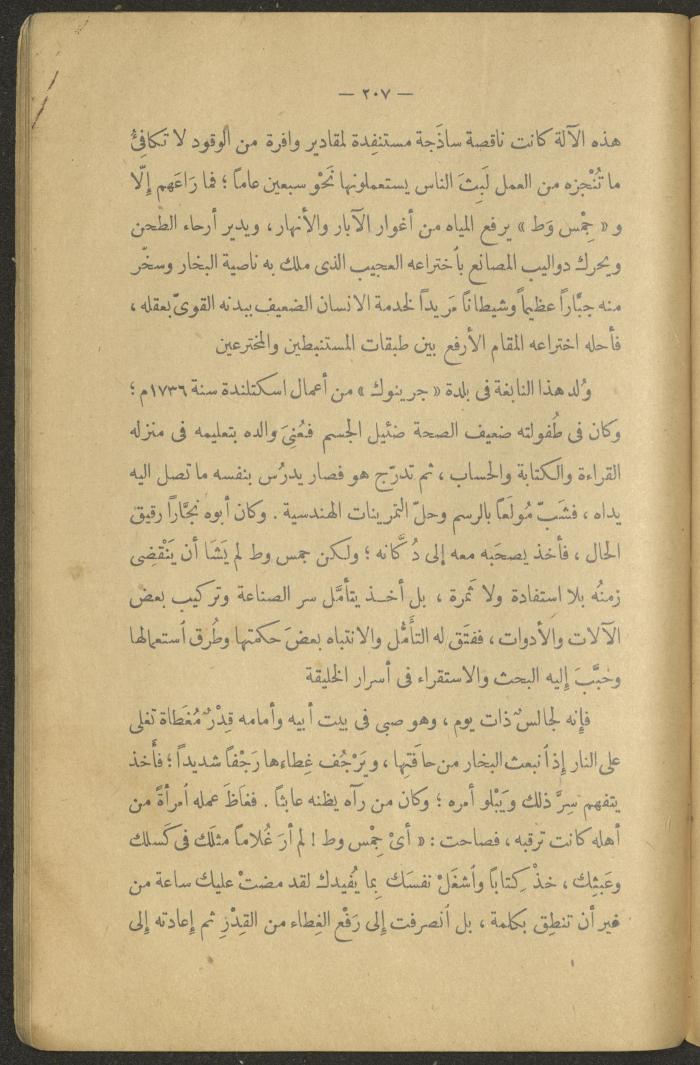 — ٢٠٧ —
هذه الآلة كانت ناقصة ساذَجة مستنفِدة لمقادير وافرة من الوقود لا تكافِئُ
ما تُنْجِزه من العمل لَبِثَ الناس يستعملونها نَحْو سبعين عاماً ؛ فما رَاعَهم إِلّا
و « جِمْس وَط » يرفع المياه من أغوار الآبار والأنهار ، ويدير أرحاء الطحن
ويحرك دواليب المصانع بٱختراعه العجيب الذى ملك به ناصية البخار وسخّر
منه جبَّاراً عظيماً وشيطاناً مَريداً لخدمة الانسان الضعيف ببدنه القوىّ بعقله ،
فأحله اختراعه المقام الأرفع بين طبقات المستنبطين والمخترعين
وُلد هذا النابغة فى بلدة « جرينوك » من أعمال اسكتلندة سنة ١٧٣٦م ؛
وكان فى طُفولته ضعيف الصحة ضئيل الجسم فعُنِىَ والده بتعليمه فى منزله
القراءة والكتابة والحساب ، ثم تدرّج هو فصار يدرُس بنفسه ما تصل اليه
يداه ، فشَبّ مُولَعاً بالرسم وحلّ التمرينات الهندسية . وكان أبوه نجَّاراً رقيق
الحال ، فأخذ يصحَبه معه إلى دُكَّانه ؛ ولكن جمس وط لم يَشَأ أن يَنْقضِى
زمنُه بلا استفادة ولا ثَمرة ، بل أخــذ يتأمَّل سر الصناعة وتركيب بعض
الآلات والأدوات ، ففتَق له التأمُّل والانتباه بعضَ حكمتها وطُرق ٱستعمالها
وحبَّبَ إِليه البحث والاستقراء فى أسرار الخليقة
فإِنه لجالسٌ ذات يوم ، وهو صبى فى بيت أبيه وأمامه قِدْرٌ مُغَطاة تغلى
على النار إِذ ٱنبعث البخار من حافَتِها ، ويَرْجُف غِطاءها رَجْفاً شديداً ؛ فأَخذ
يتفهم سِرَّ ذلك ويَبْلو أمره ؛ وكان من رآه يظنه عابثاً . فغاظَ عمله ٱمرأةً من
أهله كانت ترقبه ، فصاحت : « أىْ جِمْس وط ! لم أرَ غُلاماً مثلَك فى كَسلك
وعَبثِك ، خذْ كِتاباً وٱشغَلْ نفسَك بِما يُفيدك لقد مضتْ عليك ساعة من
غير أن تنطِق بكلمة ، بل ٱنصرفت إِلى رَفْع الغِطاء من القِدْرِ ثم إِعادته إِلى